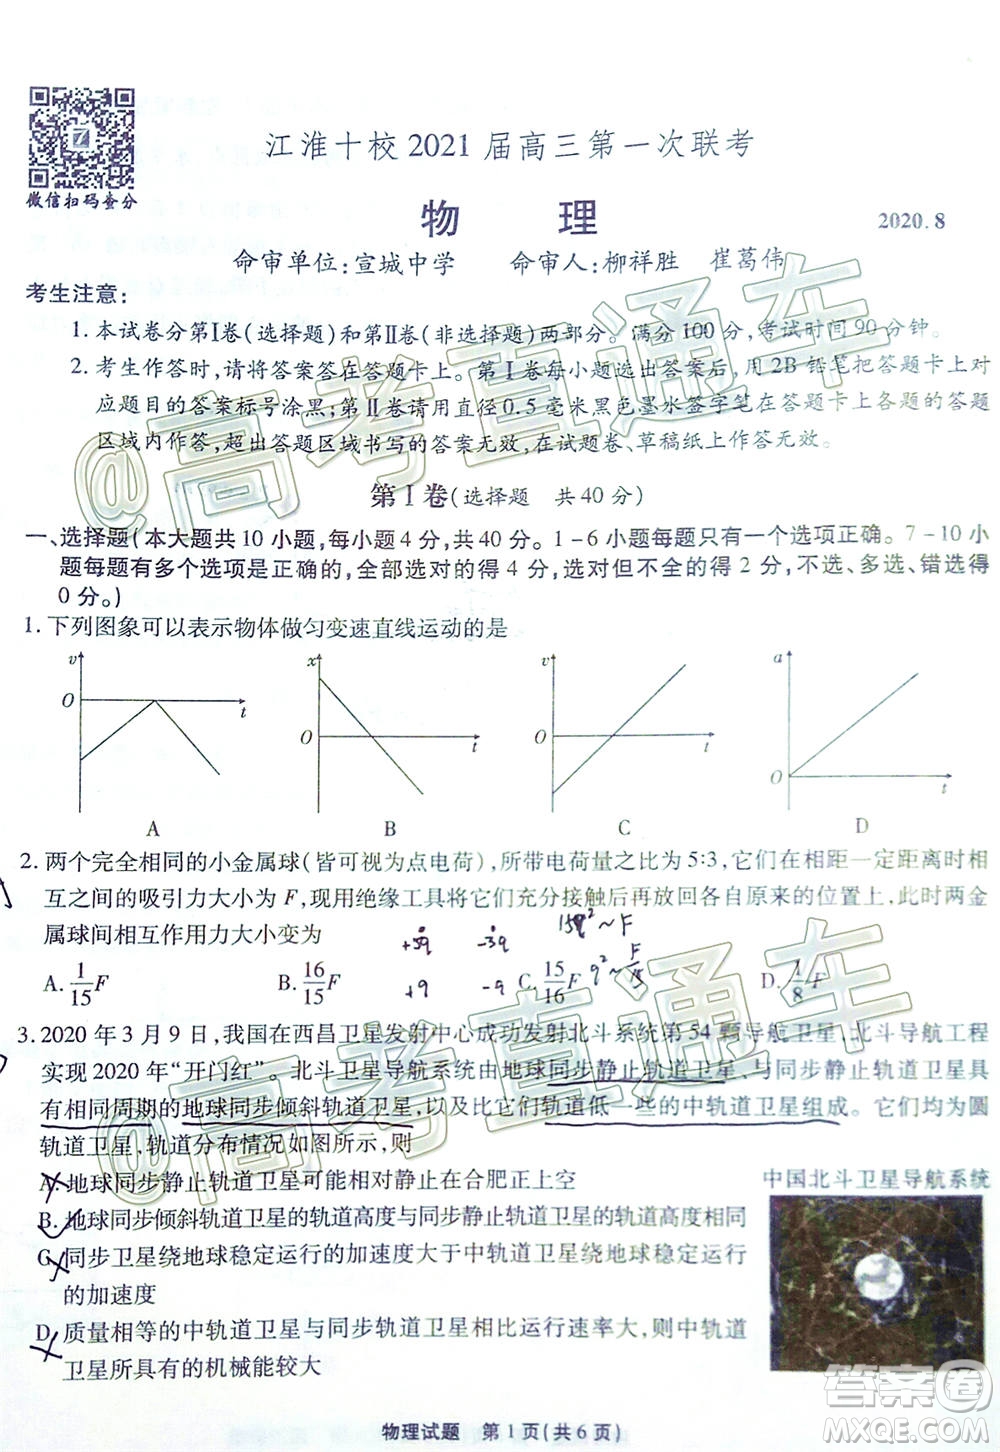 江淮十校2021届高三第一次联考
微信扫码查分
物 理
2020.8
命审单位:宣城中学 命审人:柳祥胜 崔葛伟
考生注意:
1.本试卷分第Ⅰ卷(选择题)和第Ⅱ卷(非选择题)两部分。满分100分,考试时间90分钟。
2.考生作答时,请将答案答在答题卡上。第Ⅰ卷每小题选出答案后,用2B铅笔把答题卡上对
应题目的答案标号涂黑;第Ⅱ卷请用直径0.5毫米黑色墨水签字笔在答题卡上各题的答题
区域内作答,超出答题区域书写的答案无效,在试题卷、草稿纸上作答无效。
第Ⅰ卷(选择题 共40分)
一、选择题(本大题共10小题,每小题4分,共40分。1-6小题每题只有一个选项正确。7-10小
题每题有多个选项是正确的,全部选对的得4分,选对但不全的得2分,不选、多选、错选得
0分。)
1.下列图象可以表示物体做匀变速直线运动的是
v O t
x O t
v O t
a O t
A B C D
2.两个完全相同的小金属球(皆可视为点电荷),所带电荷量之比为5:3,它们在相距一定距离时相
互之间的吸引力大小为F,现用绝缘工具将它们充分接触后再放回各自原来的位置上,此时两金
属球间相互作用力大小变为
+5q -3q 15q²~F
A. 1/15 F B. 16/15 F C. 15/16 F D. 1/8 F
+q -q q²~F/15
3.2020年3月9日,我国在西昌卫星发射中心成功发射北斗系统第54颗导航卫星,北斗导航工程
实现2020年“开门红”。北斗卫星导航系统由地球同步静止轨道卫星、与同步静止轨道卫星具
有相同周期的地球同步倾斜轨道卫星,以及比它们轨道低一些的中轨道卫星组成。它们均为圆
轨道卫星,轨道分布情况如图所示,则
A.地球同步静止轨道卫星可能相对静止在合肥正上空
B.地球同步倾斜轨道卫星的轨道高度与同步静止轨道卫星的轨道高度相同
C.同步卫星绕地球稳定运行的加速度大于中轨道卫星绕地球稳定运行
的加速度
D.质量相等的中轨道卫星与同步轨道卫星相比运行速率大,则中轨道
卫星所具有的机械能较大
中国北斗卫星导航系统
物理试题 第1页(共6页)
@高考直通车
@高考直通车
答案圈
MXQE.COM